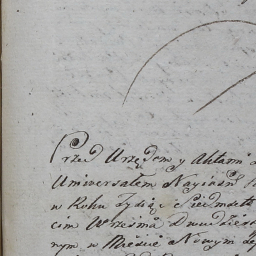 Przed Urzędem y Aktami
Uniwersałem Nayiaśń
w Roku Tysiąc Siedmset
cim Września Dwudzies
nym w Mieście Nowym